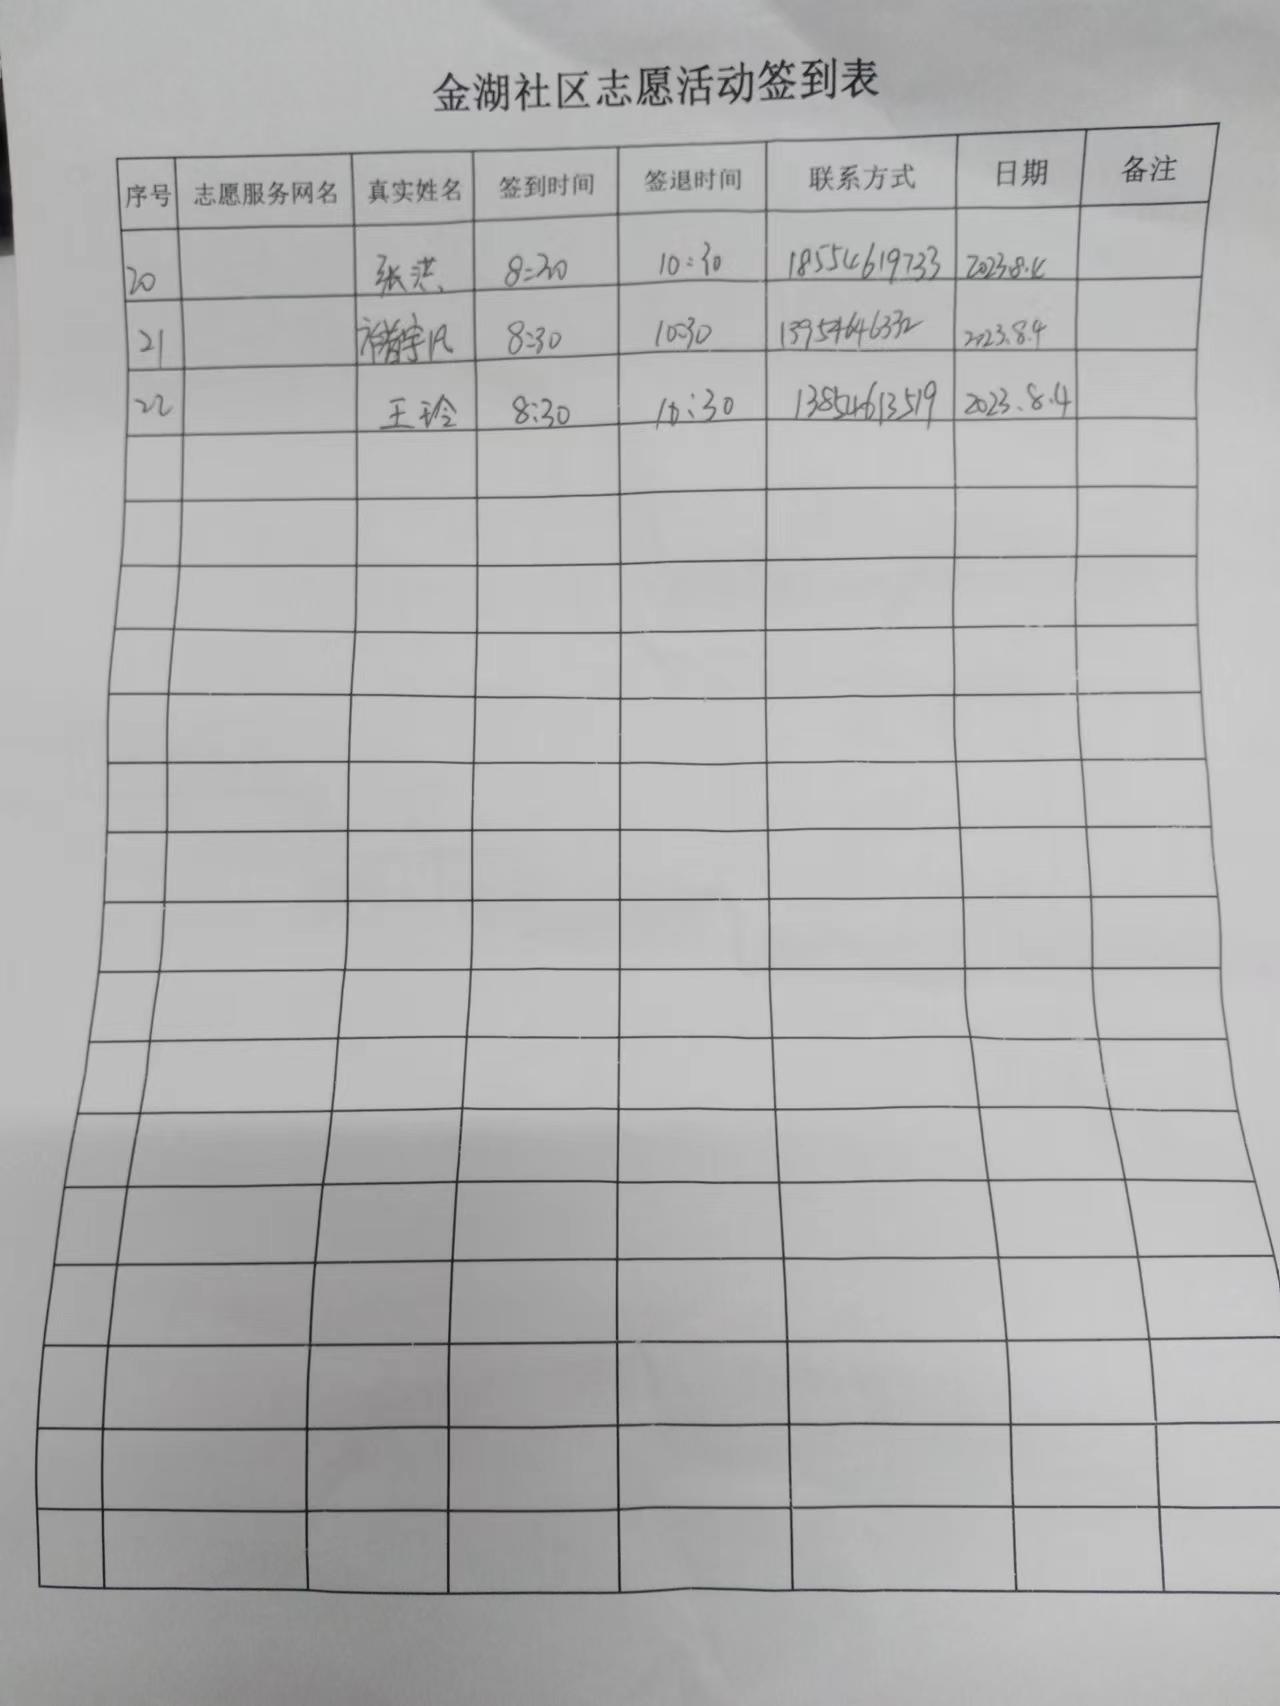 金湖社区志愿活动签到表
序号 志愿服务网名 真实姓名 签到时间 签退时间 联系方式 日期 备注
20 张洪 8:30 10:30 18554619733 2023.8.4
21 8:30 10:30 13954646332 2023.8.4
22 王玲 8:30 10:30 13854613519 2023.8.4